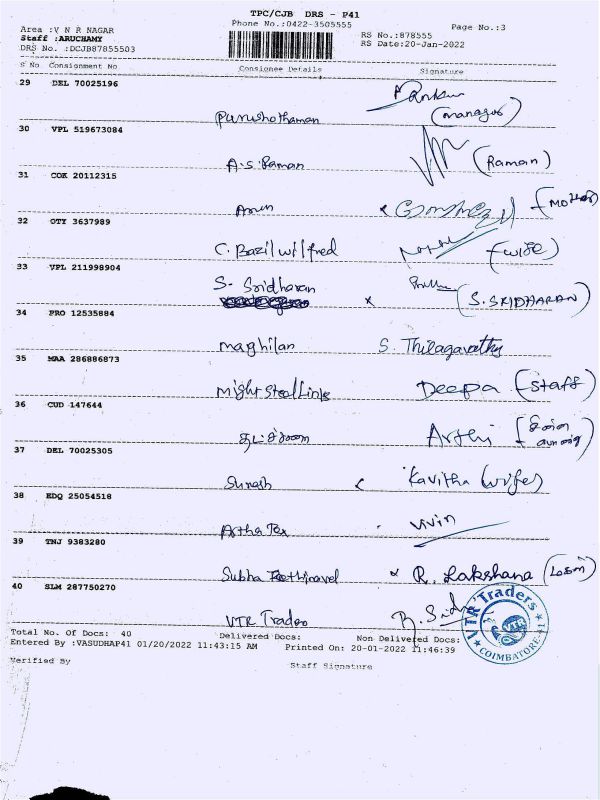 TPC/CJB DRS - P41
Phone No.:0422-3505555
Page No.:3
Area :V N R NAGAR
Staff :ARUCHAMY
DRS No. :DCJB87855503
RS No.:878555
RS Date:20-Jan-2022
S No Consignment No Consignee Details Signature
29 DEL 70025196
Purushothaman (manager)
30 VPL 519673084
A.S. Raman (Raman)
31 COK 20112315
Arun (Mother)
32 OTY 3637989
C. Bazil wilfred (wife)
33 VPL 211998904
S. Sridharan x (S.SRIDHARAN)
34 PRO 12535884
maghilan S. Thilagavathy
35 MAA 286886873
might steel links Deepa (Staff)
36 CUD 147644
Arthi
37 DEL 70025305
Suresh Kavitha (wife)
38 EDQ 25054518
Artha Tex Vivin
39 TNJ 9383280
Subha R. Lakshana
40 SLM 287750270
VTR Traders R. Sidh
VTR Traders
VTR
COIMBATORE-1
Total No. Of Docs: 40 Delivered Docs: Non Delivered Docs:
Entered By :VASUDHAP41 01/20/2022 11:43:15 AM Printed On: 20-01-2022 11:46:39
Verified By Staff Signature